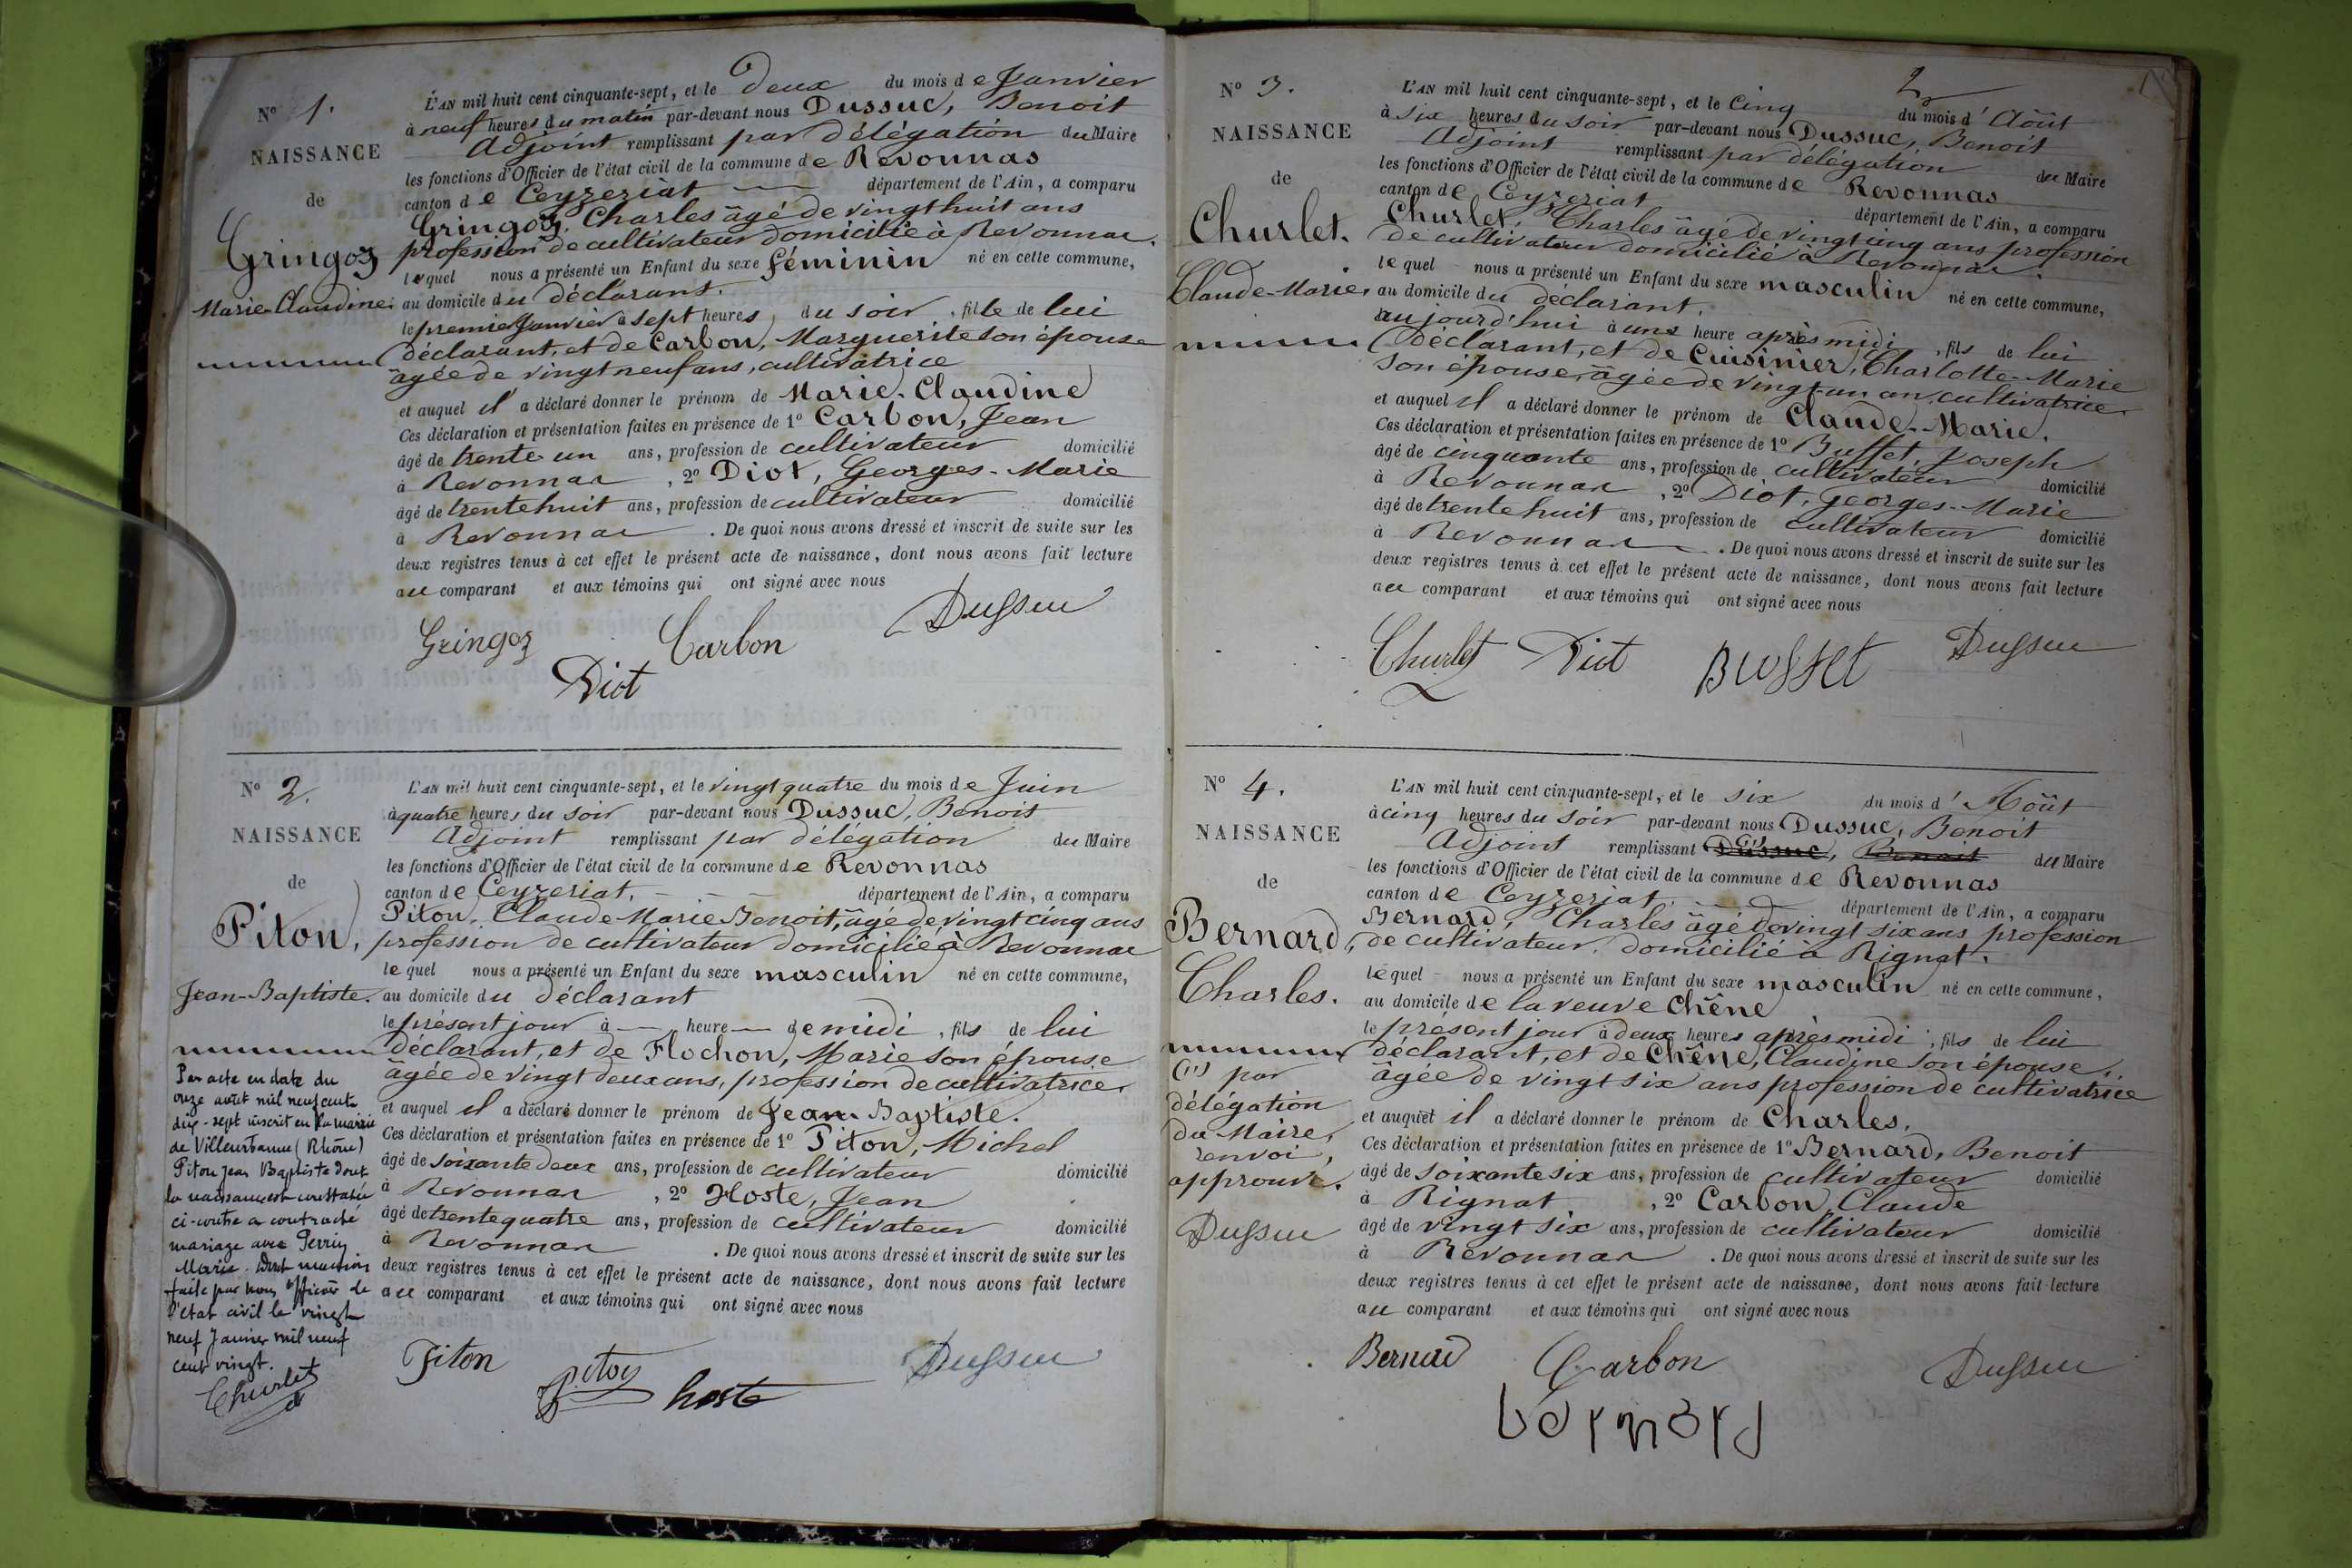 N° 1.
NAISSANCE
de
Gringoz
Marie-Claudine.
L'AN mil huit cent cinquante-sept, et le Deux du mois de Janvier
à neuf heures du matin par-devant nous Dussuc, Benoit
Adjoint remplissant par délégation du Maire
les fonctions d'Officier de l'état civil de la commune de Revonnas
canton de Ceyzeriat département de l'Ain, a comparu
Gringoz, Charles âgé de vingt huit ans
profession de cultivateur domicilié à Revonnas.
lequel nous a présenté un Enfant du sexe féminin né en cette commune,
au domicile du déclarant.
le premier Janvier à sept heures du soir, fille de lui
déclarant, et de Carbon, Marguerite son épouse
âgée de vingt neuf ans, cultivatrice
et auquel il a déclaré donner le prénom de Marie-Claudine
Ces déclaration et présentation faites en présence de 1° Carbon, Jean
âgé de trente-un ans, profession de cultivateur domicilié
à Revonnas, 2° Diot, Georges-Marie
âgé de trente huit ans, profession de cultivateur domicilié
à Revonnas. De quoi nous avons dressé et inscrit de suite sur les
deux registres tenus à cet effet le présent acte de naissance, dont nous avons fait lecture
au comparant et aux témoins qui ont signé avec nous
Gringoz Carbon Dussuc
Diot
N° 2.
NAISSANCE
de
Piton,
Jean-Baptiste.
Par acte en date du
onze août mil neuf cent
dix-sept inscrit en la mairie
de Villeurbanne (Rhône)
Piton Jean Baptiste dont
la naissance est constatée
ci-contre a contracté
mariage avec Perrin
Marie. Dont mention
faite par nous officier de
l'état civil le vingt
neuf Janvier mil neuf
cent vingt.
Churlet
L'AN mil huit cent cinquante-sept, et le vingt quatre du mois de Juin
à quatre heures du soir par-devant nous Dussuc, Benoit
Adjoint remplissant par délégation du Maire
les fonctions d'Officier de l'état civil de la commune de Revonnas
canton de Ceyzeriat. département de l'Ain, a comparu
Piton, Claude Marie Benoit, âgé de vingt cinq ans
profession de cultivateur domicilié à Revonnas
lequel nous a présenté un Enfant du sexe masculin né en cette commune,
au domicile du déclarant
le présent jour à — heure — de midi, fils de lui
déclarant, et de Flochon, Marie son épouse
âgée de vingt deux ans, profession de cultivatrice.
et auquel il a déclaré donner le prénom de Jean-Baptiste.
Ces déclaration et présentation faites en présence de 1° Piton, Michel
âgé de soixante deux ans, profession de cultivateur domicilié
à Revonnas, 2° Hoste, Jean
âgé de trente quatre ans, profession de cultivateur domicilié
à Revonnas. De quoi nous avons dressé et inscrit de suite sur les
deux registres tenus à cet effet le présent acte de naissance, dont nous avons fait lecture
au comparant et aux témoins qui ont signé avec nous
Piton Piton hoste Dussuc
2
N° 3.
NAISSANCE
de
Churlet.
Claude-Marie.
L'AN mil huit cent cinquante-sept, et le Cinq du mois d'Août
à six heures du soir par-devant nous Dussuc, Benoit
Adjoint remplissant par délégation du Maire
les fonctions d'Officier de l'état civil de la commune de Revonnas
canton de Ceyzeriat département de l'Ain, a comparu
Churlet, Charles âgé de vingt cinq ans profession
de cultivateur domicilié à Revonnas.
lequel nous a présenté un Enfant du sexe masculin né en cette commune,
au domicile du déclarant.
aujourd'hui à une heure après midi, fils de lui
Déclarant, et de Cuisinier, Charlotte-Marie
son épouse, âgée de vingt-un an, cultivatrice.
et auquel il a déclaré donner le prénom de Claude-Marie.
Ces déclaration et présentation faites en présence de 1° Buffet, Joseph
âgé de cinquante ans, profession de cultivateur domicilié
à Revonnas, 2° Diot, Georges-Marie
âgé de trente huit ans, profession de cultivateur domicilié
à Revonnas. De quoi nous avons dressé et inscrit de suite sur les
deux registres tenus à cet effet le présent acte de naissance, dont nous avons fait lecture
au comparant et aux témoins qui ont signé avec nous
Churlet Diot Buffet Dussuc
N° 4.
NAISSANCE
de
Bernard,
Charles.
(1) par
délégation
du Maire,
renvoi,
approuvé.
Dussuc
L'AN mil huit cent cinquante-sept, et le six du mois d'Août
à cinq heures du soir par-devant nous Dussuc, Benoit
Adjoint remplissant (1) Dussuc, Benoit du Maire
les fonctions d'Officier de l'état civil de la commune de Revonnas
canton de Ceyzeriat. département de l'Ain, a comparu
Bernard, Charles âgé de vingt six ans profession
de cultivateur domicilié à Rignat.
lequel nous a présenté un Enfant du sexe masculin né en cette commune,
au domicile de la veuve Chêne
le présent jour à deux heures après midi, fils de lui
déclarant, et de Chêne, Claudine son épouse,
âgée de vingt six ans profession de cultivatrice
et auquel il a déclaré donner le prénom de Charles.
Ces déclaration et présentation faites en présence de 1° Bernard, Benoit
âgé de soixante six ans, profession de cultivateur domicilié
à Rignat, 2° Carbon, Claude
âgé de vingt six ans, profession de cultivateur domicilié
à Revonnas. De quoi nous avons dressé et inscrit de suite sur les
deux registres tenus à cet effet le présent acte de naissance, dont nous avons fait lecture
au comparant et aux témoins qui ont signé avec nous
Bernard Carbon Dussuc